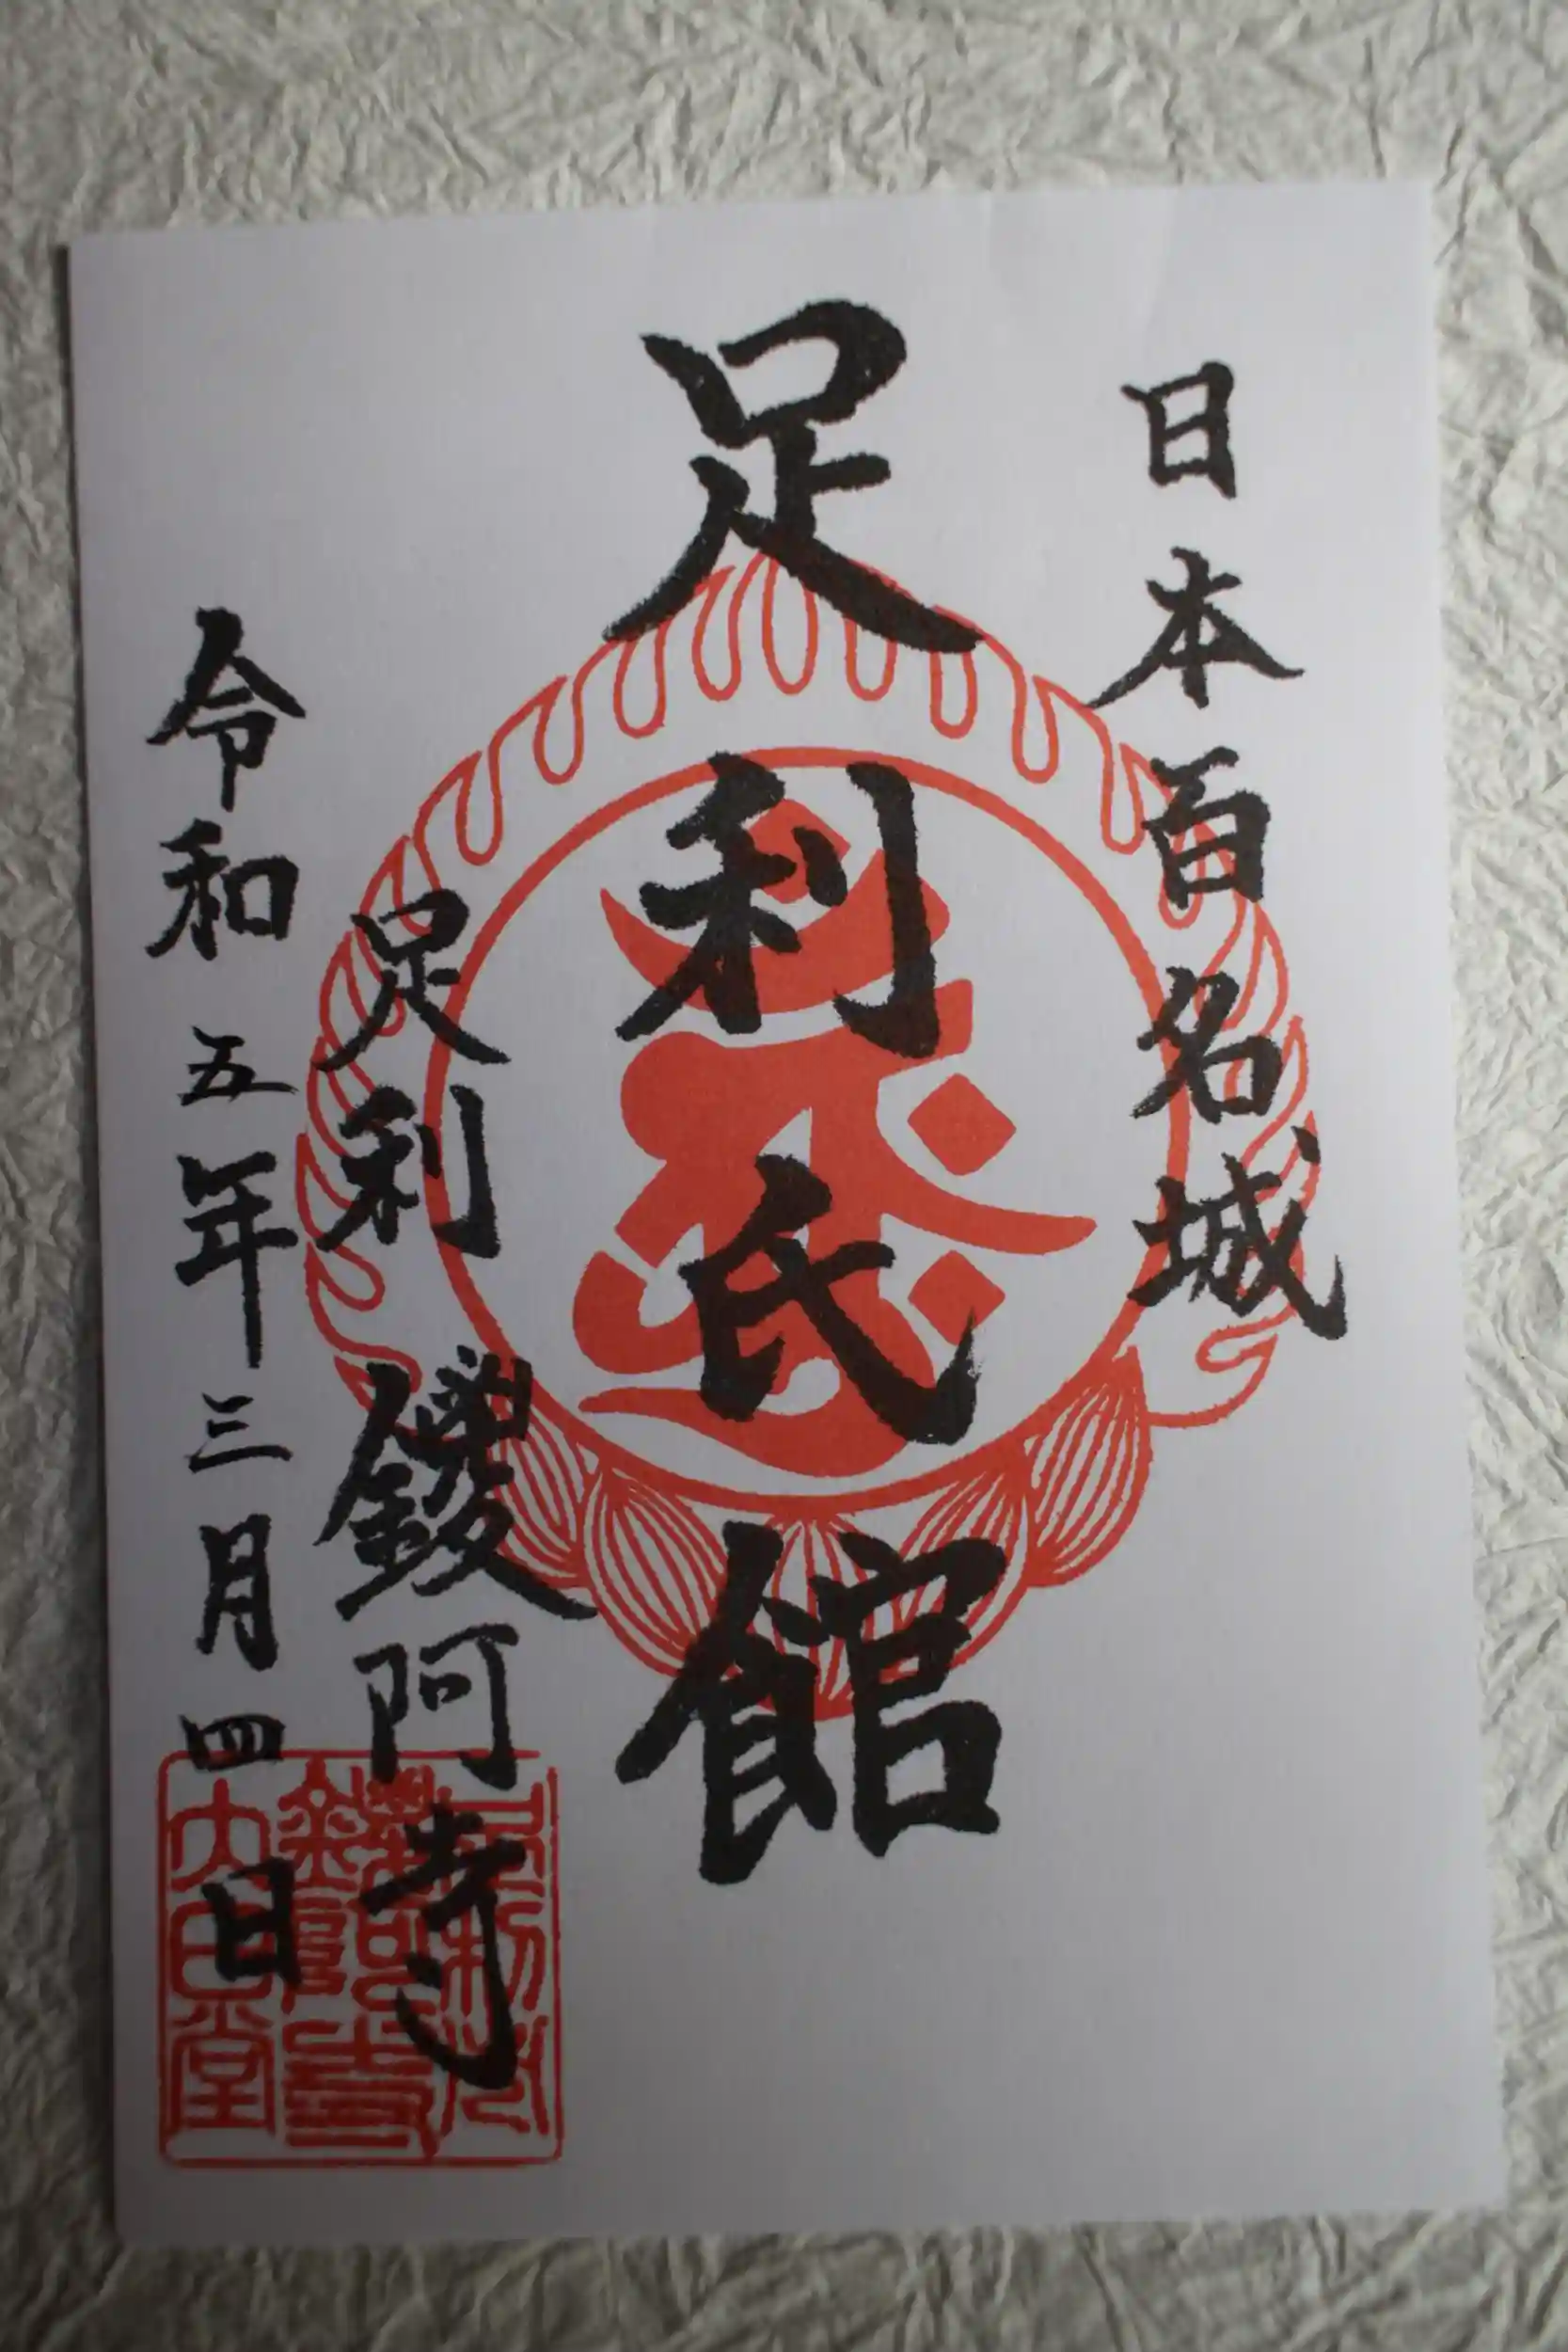 日本百名城
足利氏館
足利 鑁阿寺
令和五年三月四日
鑁阿寺
大日堂